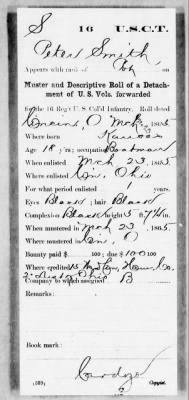 S 16 U.S.C.T.
Peter Smith
Appears with rank of Pvt on
Muster and Descriptive Roll of a Detach-
ment of U. S. Vols. forwarded
for the 16 Reg't U. S. Col'd Infantry. Roll dated
O Mch 1865.
Where born
Age 18 y'rs; occupation Boatman
When enlisted Mch 23, 1865.
Where enlisted Cin, Ohio
For what period enlisted 1 years.
Eyes Black; hair Black
Complexion Black height 5 ft. 7¼ in.
When mustered in Mch 23, 1865.
Where mustered in Cin, O
Bounty paid $ 100; due $ 100
Where credited
2" Ohio
Company to which assigned B
Remarks:
Book mark:
(339) Copyist.